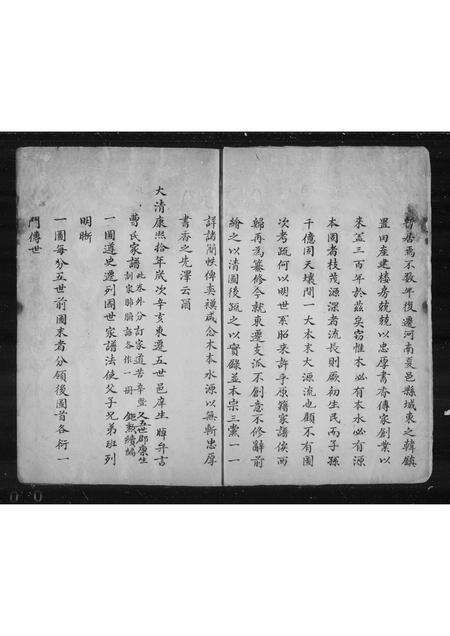 暫居焉不數年復遷河南夏邑縣城東之韓鎮
置田產建樓房兢兢以忠厚書香傳家創業以
來益三百年於茲矣竊惟木必有本水必有源
本固者枝茂源深者流長則厥初生民而子孫
千億周天壤間一大本末大源流也顧不有圖
次考疏何以明世系昭來許乎原籍家譜俟西
歸再為纂修今就東遷支派不創意不修辭前
繪之以清圖後疏之以實錄並本宗三黨一一
詳諸簡帙俾奕禩咸念木本水源以無斬忠厚
書香之先澤云爾
大清康熙拾年歲次辛亥東遷五世邑庠生 暲弁言
曹氏家譜 此卷外分訂家道苦辛暨 制家肺腸語各作一冊 又五世郡庠生 勉熱續編
一圖遵史遷列國世家譜法使父子兄弟班列
明晰
一圖每分五世前圖末者分領後圖首各衍一
門傳世